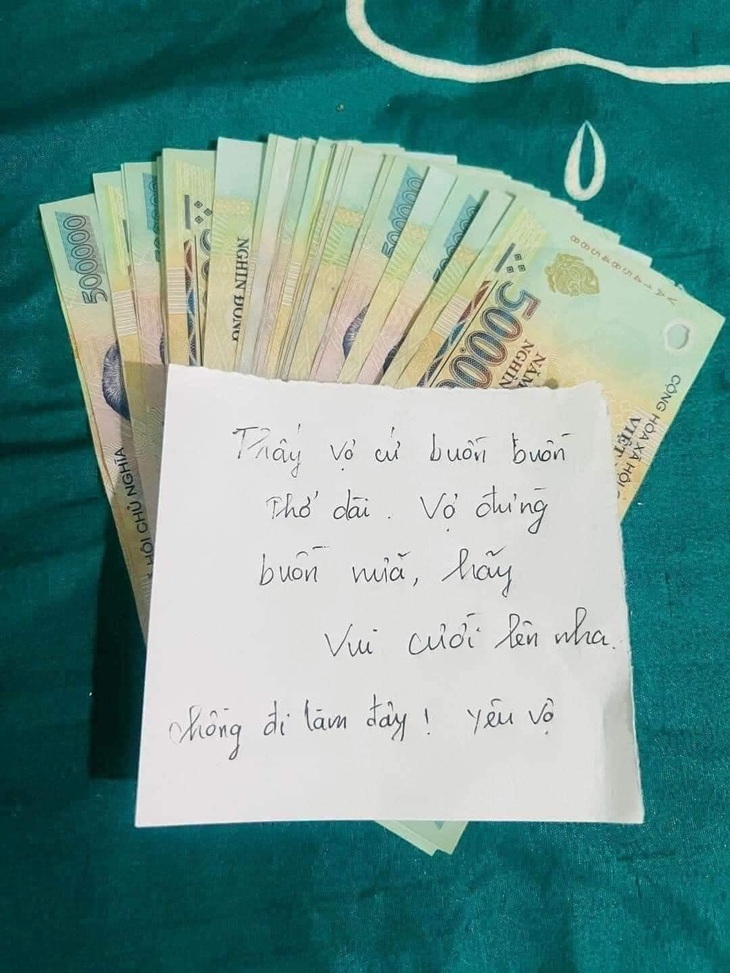 500000
NGHÌN ĐỒNG
500000
500000
50000
NĂM
NGHÌN
VA14584588
CỘNG HÒA XÃ HỘI
VIỆT
HỘI CHỦ NGHĨA
Thấy vợ cứ buồn buồn
Thở dài. Vợ đừng
buồn nữa, hãy
Vui cười lên nha.
chồng đi làm đây! Yêu vợ